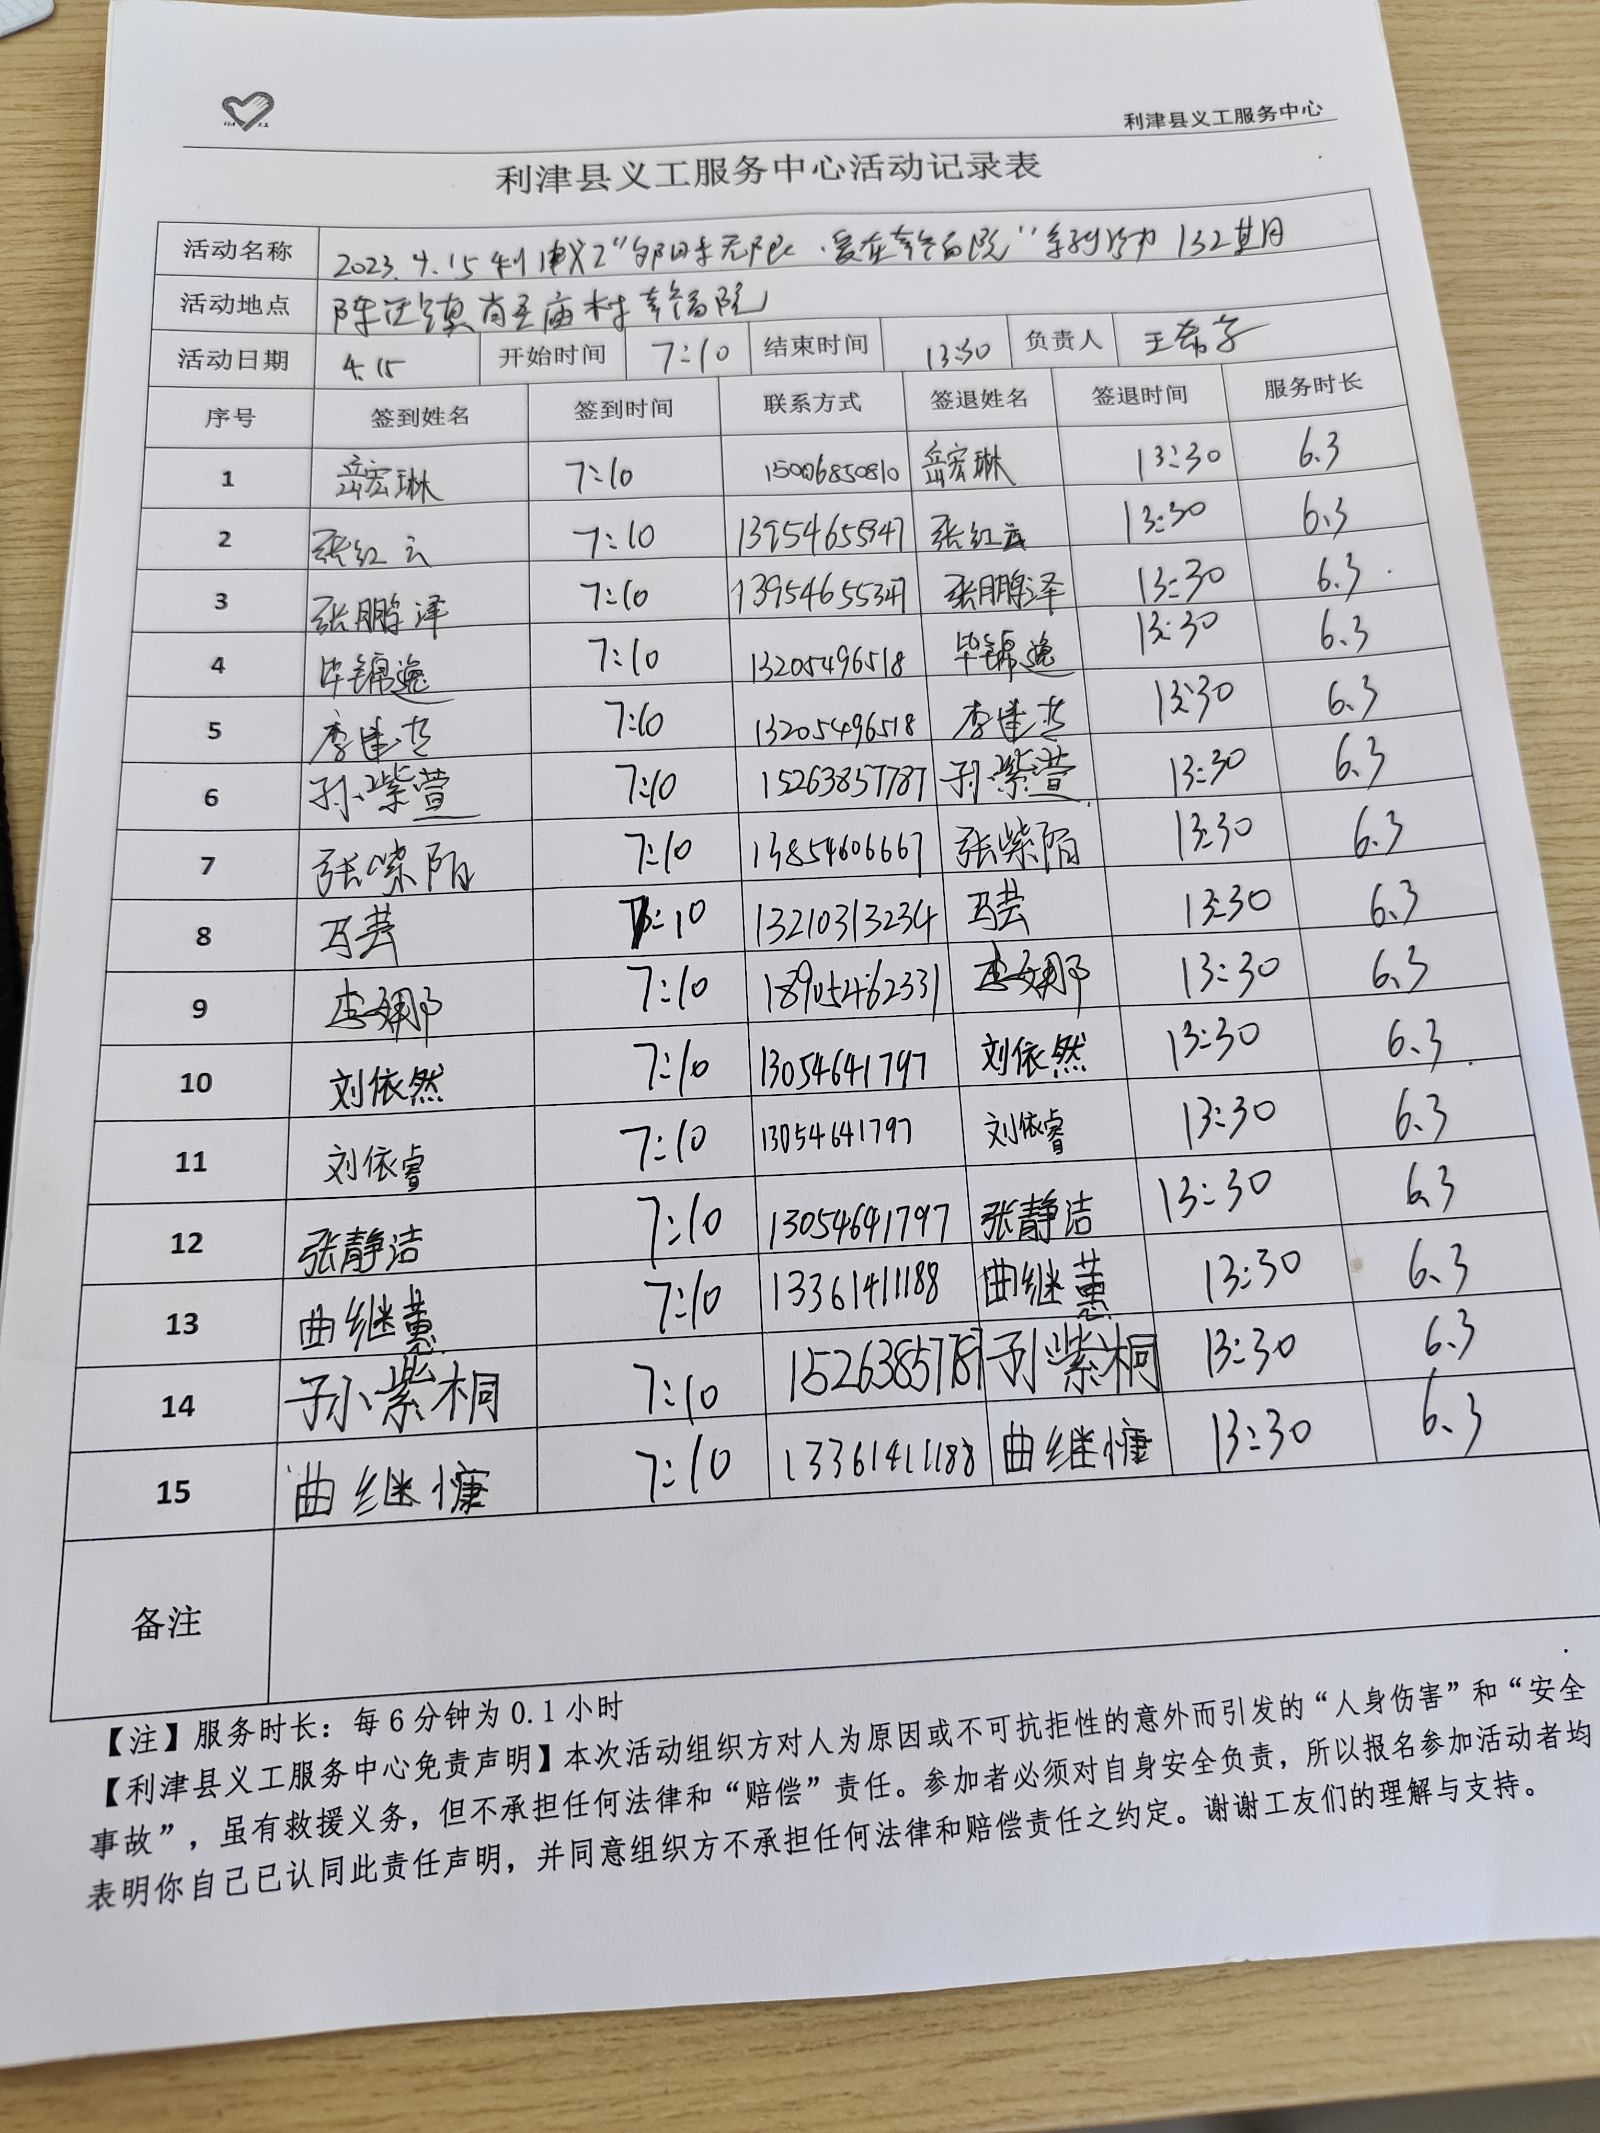 利津县义工服务中心
利津县义工服务中心活动记录表
活动名称 2023.4.15利津义工“夕阳无限·爱在幸福院”系列活动132期
活动地点 陈庄镇 庙村幸福院
活动日期 4.15 开始时间 7:10 结束时间 13:30 负责人 王希
序号 签到姓名 签到时间 联系方式 签退姓名 签退时间 服务时长
1 岳宏琳 7:10 15006850810 岳宏琳 13:30 6.3
2 张红云 7:10 13954655347 张红云 13:30 6.3
3 张鹏泽 7:10 13954655347 张鹏泽 13:30 6.3
4 毕锦逸 7:10 13205496518 毕锦逸 13:30 6.3
5 李建 7:10 13205496518 李建 13:30 6.3
6 孙紫萱 7:10 15263857787 孙紫萱 13:30 6.3
7 张紫陌 7:10 13854606667 张紫陌 13:30 6.3
8 万芸 7:10 13210313234 万芸 13:30 6.3
9 李娜 7:10 18905462331 李娜 13:30 6.3
10 刘依然 7:10 13054641797 刘依然 13:30 6.3
11 刘依睿 7:10 13054641797 刘依睿 13:30 6.3
12 张静洁 7:10 13054641797 张静洁 13:30 6.3
13 曲继蕙 7:10 13361411188 曲继蕙 13:30 6.3
14 孙紫桐 7:10 15263857787 孙紫桐 13:30 6.3
15 曲继慷 7:10 13361411188 曲继慷 13:30 6.3
备注
【注】服务时长：每6分钟为0.1小时
【利津县义工服务中心免责声明】本次活动组织方对人为原因或不可抗拒性的意外而引发的“人身伤害”和“安全
事故”，虽有救援义务，但不承担任何法律和“赔偿”责任。参加者必须对自身安全负责，所以报名参加活动者均
表明你自己已认同此责任声明，并同意组织方不承担任何法律和赔偿责任之约定。谢谢工友们的理解与支持。